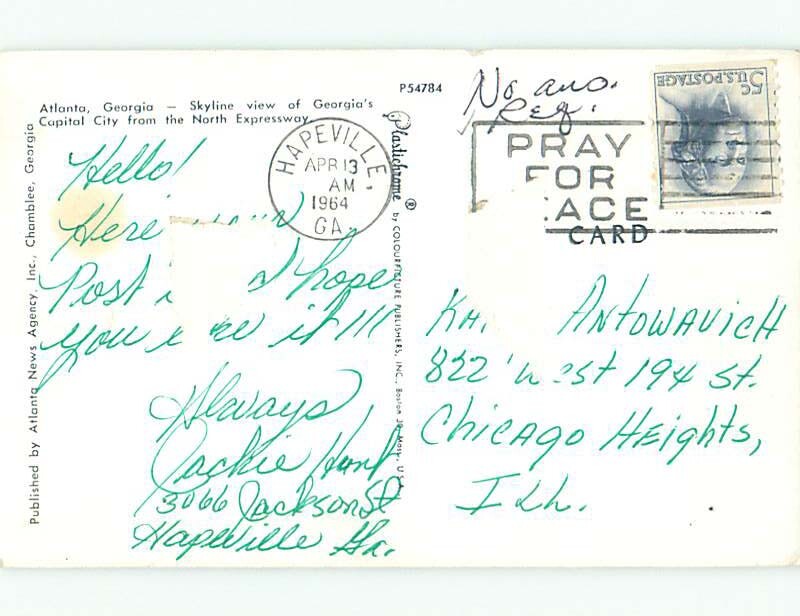 P54784
No ano.
Reg.
5¢
U.S.POSTAGE
Atlanta, Georgia — Skyline view of Georgia's
Capital City from the North Expressway.
HAPEVILLE
APR 13
AM
1964
GA.
PRAY
FOR
ACE
CARD
Hello!
Here
Post I hope
you it !!!
Always
Jackie Hunt
3066 Jackson St
Hapeville Ga.
Published by Atlanta News Agency, Inc., Chamblee, Georgia
Plastichrome ® by COLOURPICTURE PUBLISHERS, INC., Boston 30, Mass., U.S.A.
Antowavich
822 West 194 St.
Chicago Heights,
Ill.